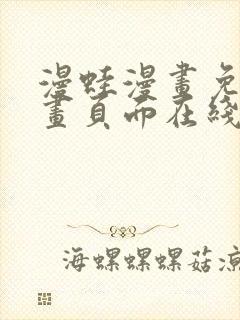 漫蛙漫畫免
畫頁面在綫
海螺螺螺菇凉